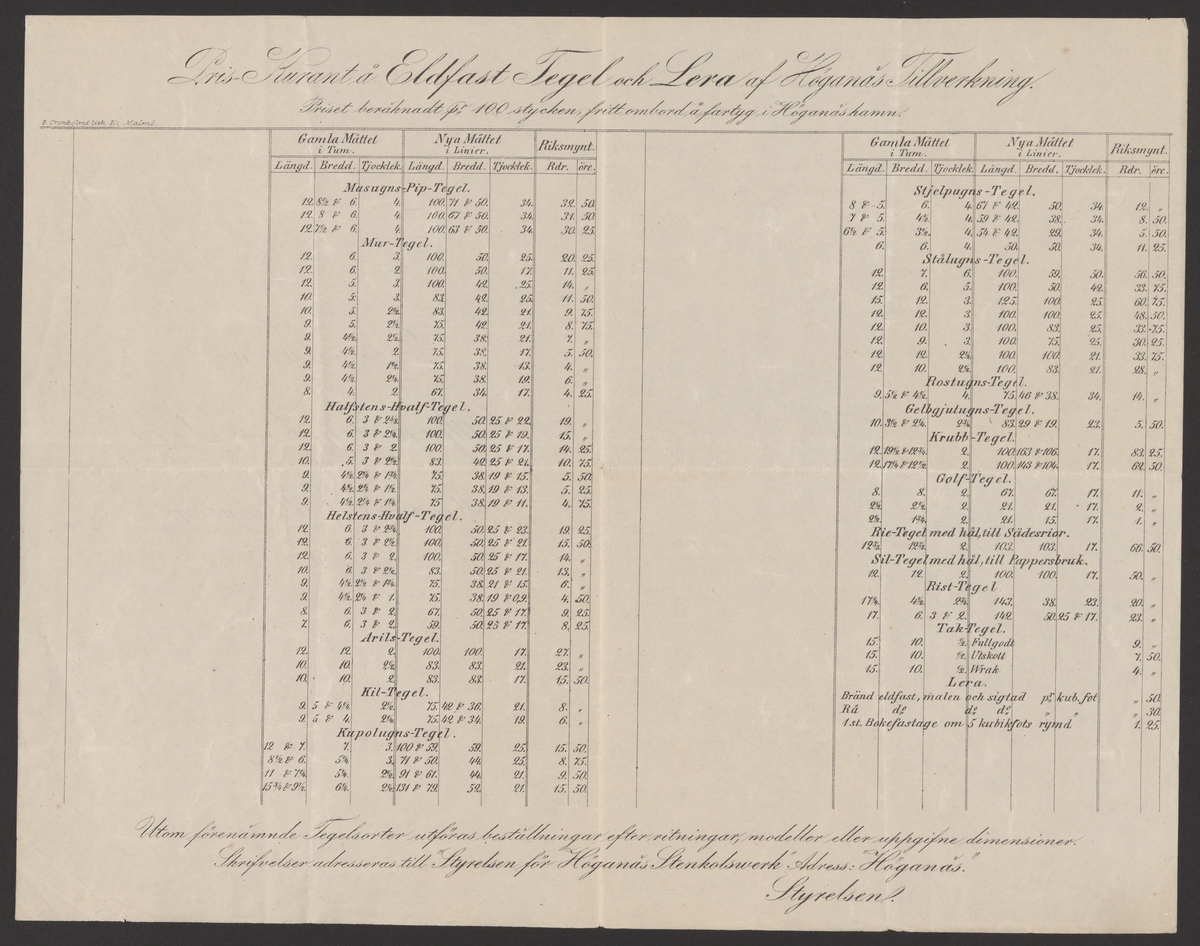 Pris-Kurant å Eldfast Tegel och Lera af Höganäs Tillverkning.
Priset beräknadt pr. 100 stycken, fritt ombord å fartyg i Höganäs hamn.
B. Cronholms lith. E: Malmö
Gamla Måttet Nya Måttet Riksmynt.
i Tum. i Linier.
Längd. Bredd. Tjocklek. Längd. Bredd. Tjocklek. Rdr. öre.
Masugns-Pip-Tegel.
12. 8½ & 6. 4. 100. 71 & 50. 34. 32. 50.
12. 8 & 6. 4. 100. 67 & 50. 34. 31. 50.
12. 7½ & 6. 4. 100. 63 & 50. 34. 30. 25.
Mur-Tegel.
12. 6. 3. 100. 50. 25. 20. 25.
12. 6. 2. 100. 50. 17. 11. 25.
12. 5. 3. 100. 42. 25. 14. „
10. 5. 3. 83. 42. 25. 11. 50.
10. 5. 2½. 83. 42. 21. 9. 75.
9. 5. 2½. 75. 42. 21. 8. 75.
9. 4½. 2½. 75. 38. 21. 7. „
9. 4½. 2. 75. 38. 17. 5. 50.
9. 4½. 1½. 75. 38. 13. 4. „
9. 4½. 2¼. 75. 38. 19. 6. „
8. 4. 2. 67. 34. 17. 4. 25.
Halfstens-Hvalf-Tegel.
12. 6. 3 & 2⅝. 100. 50. 25 & 22. 19. „
12. 6. 3 & 2¼. 100. 50. 25 & 19. 15. „
12. 6. 3 & 2. 100. 50. 25 & 17. 14. 25.
10. 5. 3 & 2½. 83. 42. 25 & 21. 10. 75.
9. 4½. 2¼ & 1¾. 75. 38. 19 & 15. 5. 50.
9. 4½. 2¼ & 1½. 75. 38. 19 & 13. 5. 25.
9. 4½. 2¼ & 1¼. 75. 38. 19 & 11. 4. 75.
Helstens-Hvalf-Tegel.
12. 6. 3 & 2¾. 100. 50. 25 & 23. 19. 25.
12. 6. 3 & 2½. 100. 50. 25 & 21. 15. 50.
12. 6. 3 & 2. 100. 50. 25 & 17. 14. „
10. 6. 3 & 2½. 83. 50. 25 & 21. 13. „
9. 4½. 2½ & 1¾. 75. 38. 21 & 15. 6. „
9. 4½. 2¼ & 1. 75. 38. 19 & 09. 4. 50.
8. 6. 3 & 2. 67. 50. 25 & 17. 9. 25.
7. 6. 3 & 2. 59. 50. 25 & 17. 8. 25.
Arils-Tegel.
12. 12. 2. 100. 100. 17. 27. „
10. 10. 2½. 83. 83. 21. 23. „
10. 10. 2. 83. 83. 17. 15. 50.
Kil-Tegel.
9. 5 & 4¼. 2½. 75. 42 & 36. 21. 8. „
9. 5 & 4. 2¼. 75. 42 & 34. 19. 6. „
Kupolugns-Tegel.
12 & 7. 7. 3. 100 & 59. 59. 25. 15. 50.
8½ & 6. 5¼. 3. 71 & 50. 44. 25. 8. 75.
11 & 7¼. 5¼. 2½. 91 & 61. 44. 21. 9. 50.
15¾ & 9½. 6¼. 2½. 131 & 79. 52. 21. 15. 50.
Gamla Måttet Nya Måttet Riksmynt.
i Tum. i Linier.
Längd. Bredd. Tjocklek. Längd. Bredd. Tjocklek. Rdr. öre.
Stjelpugns-Tegel.
8 & 5. 6. 4. 67 & 42. 50. 34. 12. „
7 & 5. 4½. 4. 59 & 42. 38. 34. 8. 50.
6½ & 5. 3½. 4. 54 & 42. 29. 34. 5. 50.
6. 6. 4. 50. 50. 34. 11. 25.
Stålugns-Tegel.
12. 7. 6. 100. 59. 50. 56. 50.
12. 6. 5. 100. 50. 42. 33. 75.
15. 12. 3. 125. 100. 25. 60. 75.
12. 12. 3. 100. 100. 25. 48. 50.
12. 10. 3. 100. 83. 25. 33. 75.
12. 9. 3. 100. 75. 25. 30. 25.
12. 12. 2½. 100. 100. 21. 33. 75.
12. 10. 2½. 100. 83. 21. 28. „
Rostugns-Tegel.
9. 5½ & 4½. 4. 75. 46 & 38. 34. 14. „
Gelbgjutugns-Tegel.
10. 3½ & 2¼. 2¾. 83. 29 & 19. 23. 5. 50.
Krubb-Tegel.
12. 19½ & 12¾. 2. 100. 163 & 106. 17. 83. 25.
12. 17¼ & 12½. 2. 100. 143 & 104. 17. 62. 50.
Golf-Tegel.
8. 8. 2. 67. 67. 17. 11. „
2½. 2½. 2. 21. 21. 17. 2. „
2½. 1¾. 2. 21. 15. 17. 1. „
Rie-Tegel med hål, till Sädesrior.
12⅜. 12⅜. 2. 103. 103. 17. 66. 50.
Sil-Tegel med hål, till Pappersbruk.
12. 12. 2. 100. 100. 17. 50. „
Rist-Tegel
17¼. 4½. 2¾. 143. 38. 23. 20. „
17. 6. 3 & 2. 142. 50. 25 & 17. 23. „
Tak-Tegel.
15. 10. ½. Fullgodt 9. „
15. 10. ½. Utskott 7. 50.
15. 10. ½. Wrak 4. „
Lera.
Bränd eldfast, malen och sigtad pr. kub.fot „ 50.
Rå do. do. do. „ „ „ 30.
1 st. Bokefastage om 5 kubikfots rymd 1. 25.
Utom förenämnde Tegelsorter utföras beställningar efter ritningar, modeller eller uppgifne dimensioner.
Skrifvelser adresseras till "Styrelsen för Höganäs Stenkolswerk" Adress: "Höganäs".
Styrelsen.